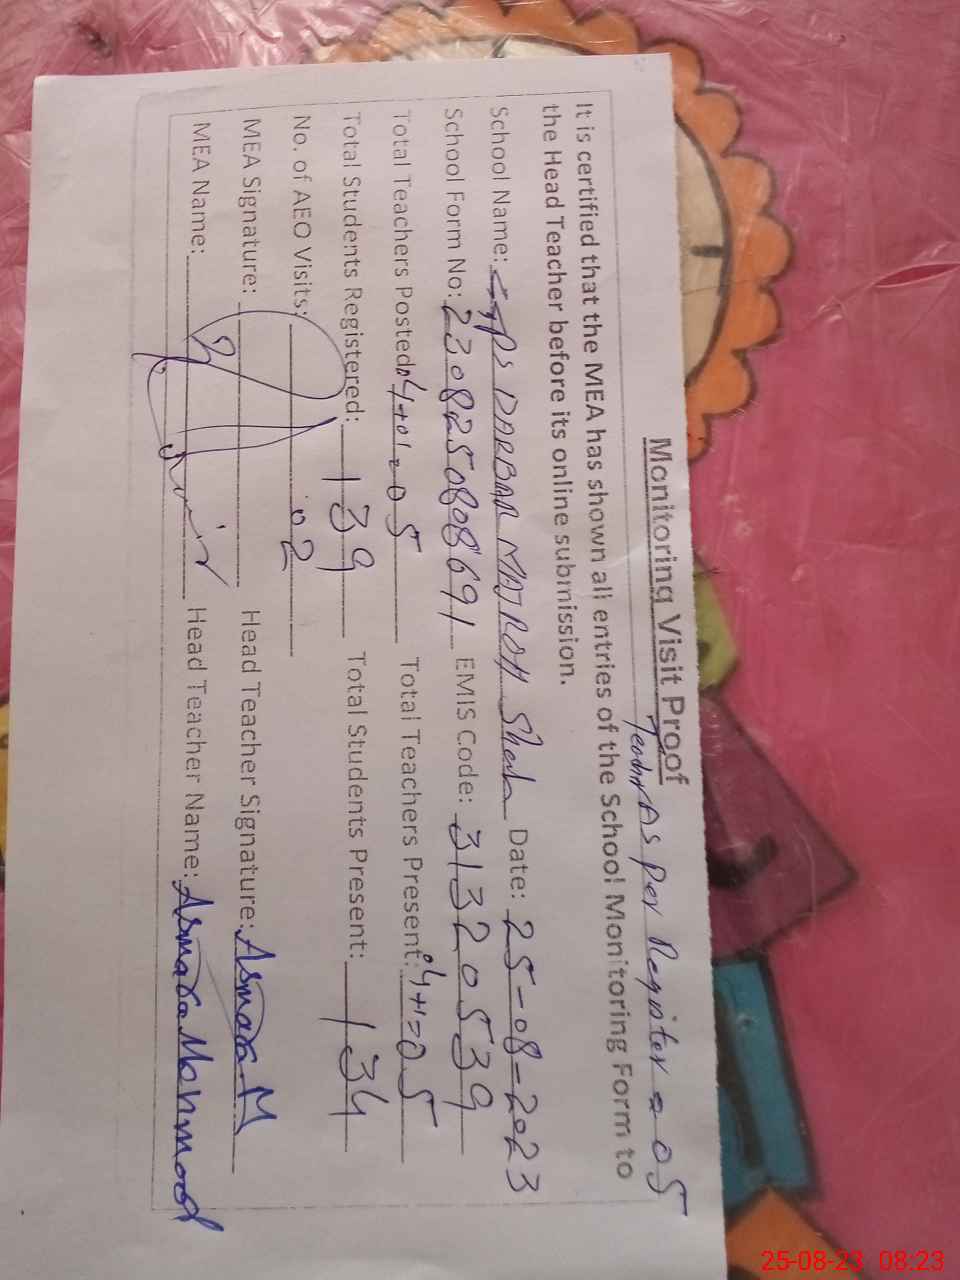 Monitoring Visit Proof
Teachr As per Register = 05
It is certified that the MEA has shown all entries of the School Monitoring Form to
the Head Teacher before its online submission.
School Name: GPS DARBAR Shah Date: 25-08-2023
School Form No: 2308250808691 EMIS Code: 31320539
Total Teachers Posted: 04+01=05 Total Teachers Present: 04+1=05
Total Students Registered: 139 Total Students Present: 134
No. of AEO Visits: 02
MEA Signature: Head Teacher Signature: Asmara M
MEA Name: Head Teacher Name: Asmara Mehmood
25-08-23 08:23